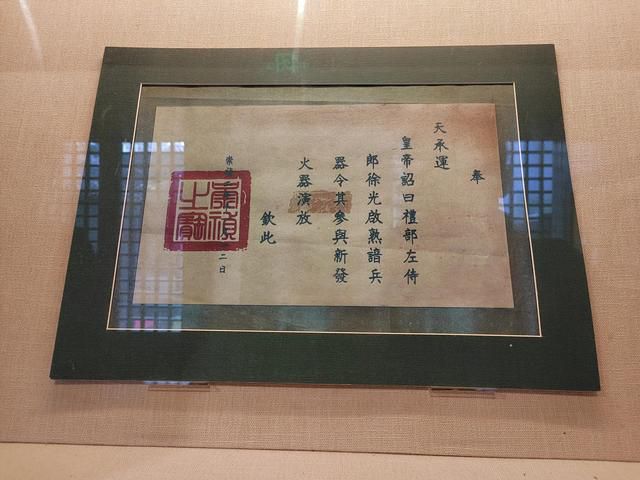 奉
天承運
皇帝詔曰禮部左侍
郎徐光啟熟諳兵
器令其參與新發
火器演放
欽此
崇禎
二日
崇禎
之寶